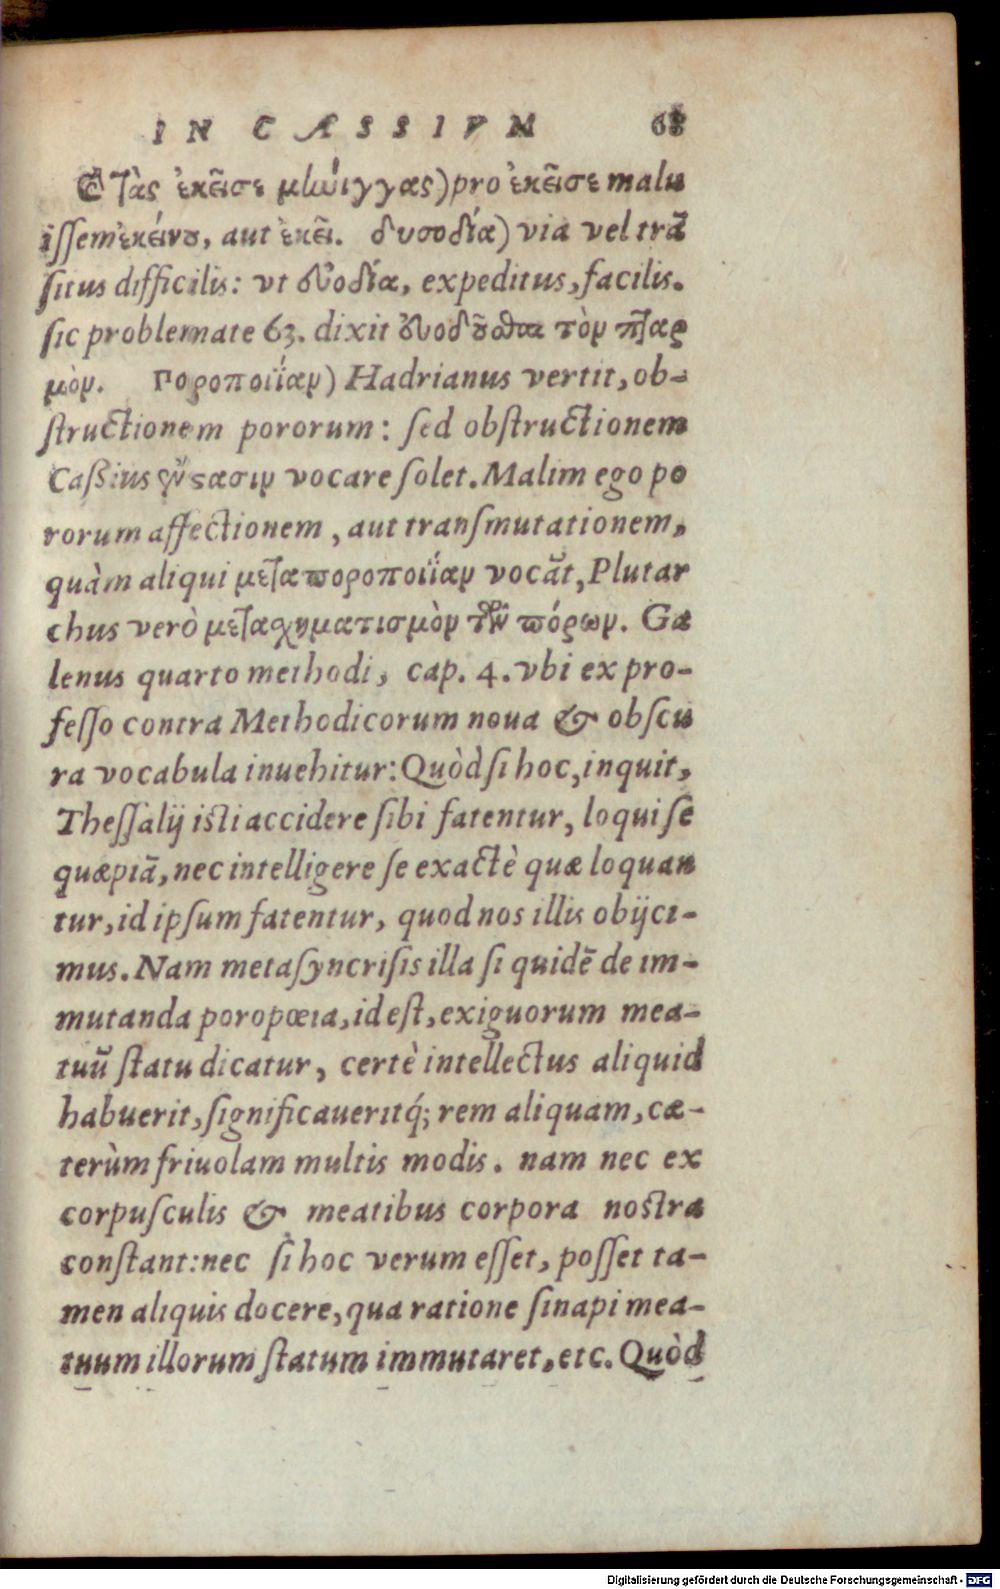 IN CÆSSIVM 68
τὰς ἐκεῖσε μήνιγγας) pro ἐκεῖσε malu
iſſem ἐκείνου, aut ἐκεῖ. δυσοδία) via vel trã
ſitus difficilis: vt εὐοδία, expeditus, facilis.
ſic problemate 63. dixit εὐοδοῦσθαι τὸν πταρ
μόν. Ποροποιΐαν) Hadrianus vertit, ob-
ſtructionem pororum: ſed obſtructionem
Caßius ἔνστασιν vocare ſolet. Malim ego po
rorum affectionem, aut tranſmutationem,
quàm aliqui μεταποροποιΐαν vocãt, Plutar
chus verò μετασχηματισμὸν τῶν πόρων. Ga
lenus quarto methodi, cap. 4. vbi ex pro-
feſſo contra Methodicorum noua & obſcu
ra vocabula inuehitur: Quòd ſi hoc, inquit,
Theſſalij iſti accidere ſibi fatentur, loqui ſe
quæpiã, nec intelligere ſe exactè quæ loquan
tur, id ipſum fatentur, quod nos illis obijci-
mus. Nam metaſyncriſis illa ſi quidẽ de im-
mutanda poropœia, id eſt, exiguorum mea-
tuũ ſtatu dicatur, certè intellectus aliquid
habuerit, ſignificaueritq́; rem aliquam, cæ-
terùm friuolam multis modis. nam nec ex
corpuſculis & meatibus corpora noſtra
conſtant: nec ſi hoc verum eſſet, poſſet ta-
men aliquis docere, qua ratione ſinapi mea-
tuum illorum ſtatum immutaret, etc. Quòd
Digitalisierung gefördert durch die Deutsche Forschungsgemeinschaft - DFG